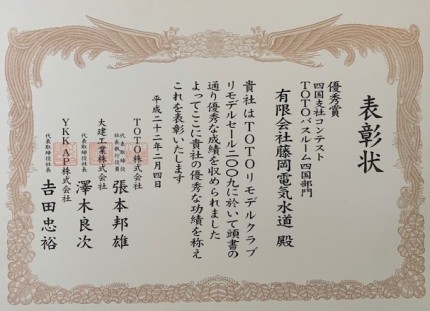 表彰状
優秀賞
四国支社コンテスト
TOTOバスルーム四国部門
有限会社藤岡電気水道 殿
貴社はTOTOリモデルクラブ
リモデルセール二〇〇九に於いて頭書の
通り優秀な成績を収められました
よってここに貴社の優秀な功績を称え
これを表彰いたします
平成二十二年二月四日
TOTO株式会社
代表取締役
社長執行役員
張本邦雄
大建工業株式会社
代表取締役社長
澤木良次
YKK AP株式会社
代表取締役社長
吉田忠裕